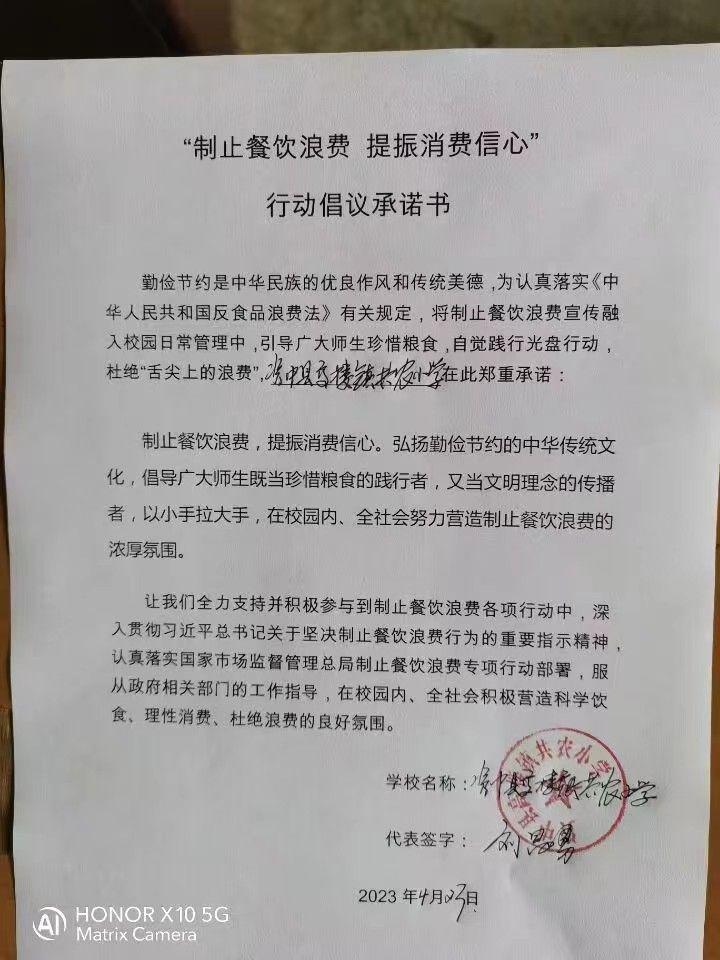 “制止餐饮浪费 提振消费信心”
行动倡议承诺书
勤俭节约是中华民族的优良作风和传统美德，为认真落实《中
华人民共和国反食品浪费法》有关规定，将制止餐饮浪费宣传融
入校园日常管理中，引导广大师生珍惜粮食，自觉践行光盘行动，
杜绝“舌尖上的浪费”，镇共农小学在此郑重承诺：
制止餐饮浪费，提振消费信心。弘扬勤俭节约的中华传统文
化，倡导广大师生既当珍惜粮食的践行者，又当文明理念的传播
者，以小手拉大手，在校园内、全社会努力营造制止餐饮浪费的
浓厚氛围。
让我们全力支持并积极参与到制止餐饮浪费各项行动中，深
入贯彻习近平总书记关于坚决制止餐饮浪费行为的重要指示精神，
认真落实国家市场监督管理总局制止餐饮浪费专项行动部署，服
从政府相关部门的工作指导，在校园内、全社会积极营造科学饮
食、理性消费、杜绝浪费的良好氛围。
镇共农小学
学校名称：共农小学
代表签字：
2023 年4月日
HONOR X10 5G
AI Matrix Camera